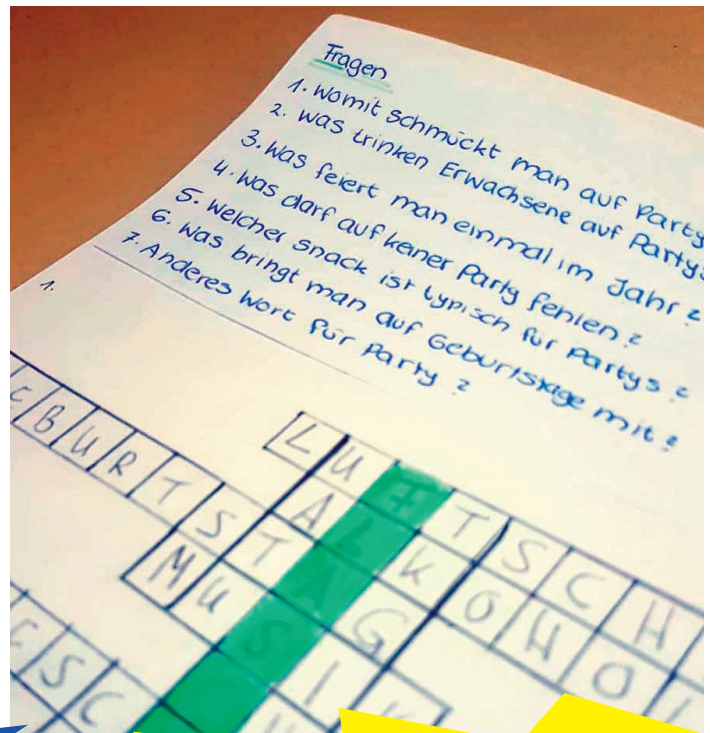 Fragen
1. Womit schmückt man auf Party
2. Was trinken Erwachsene auf Partys
3. Was feiert man einmal im Jahr?
4. Was darf auf keiner Party fehlen?
5. Welcher snack ist typisch für Partys?
6. Was bringt man auf Geburtstage mit?
7. Anderes Wort für Party?
1.
LUFTSCH
ALKOHOL
EBURTSTAG
MUSIK
ESC